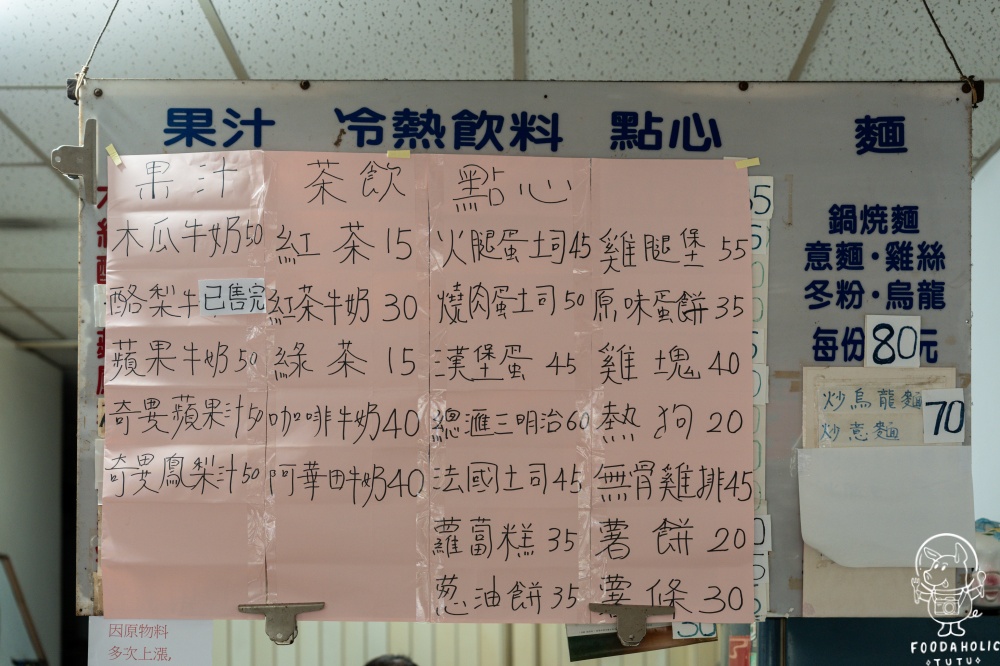 果汁 冷熱飲料 點心 麵
果汁
木瓜牛奶50
酪梨牛 已售完
蘋果牛奶50
奇異蘋果汁50
奇異鳳梨汁50
茶飲
紅茶15
紅茶牛奶30
綠茶15
咖啡牛奶40
阿華田牛奶40
點心
火腿蛋土司45
燒肉蛋土司50
漢堡蛋45
總滙三明治60
法國土司45
蘿蔔糕35
葱油餅35
雞腿堡55
原味蛋餅35
雞塊40
熱狗20
無骨雞排45
薯餅20
薯條30
鍋燒麵
意麵・雞絲
冬粉・烏龍
每份80元
炒烏龍麵
炒意麵
70
因原物料
多次上漲,
FOODAHOLIC
TUTU